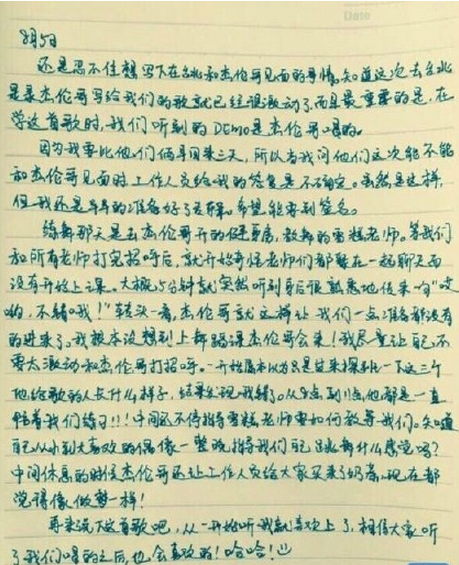 Date
8月5日
还是忍不住想写下在台北和杰伦哥见面的事情。知道这次去台北
是录杰伦哥写给我们的歌就已经很激动了。而且最重要的是,在
学这首歌时,我们听到的DEMO是杰伦哥唱的。
因为我要比他们俩早回来三天,所以当我问他们这次能不能
和杰伦哥见面时工作人员给我的答复是不确定。虽然是这样,
但我还是早早的准备好了专辑。希望能要到签名。
练舞那天是去杰伦哥开的健身房,教舞的雪糕老师。等我们
和所有老师打完招呼后,就开始奇怪老师们都聚在一起聊天而
没有开始上课。大概5分钟就突然听到身后很熟悉地传来一句“哎
哟,不错哦!”转头一看,杰伦哥就这样让我们一点准备都没有
的进来了。我根本没想到上舞蹈课杰伦哥会来!我尽量让自己不
要太激动和杰伦哥打招呼。一开始原本以为只是过来探班一下这三个
他给歌的人长什么样子,结果发现我错了。从8点到11点,他都是一直
陪着我们练习!!!中间还不停指导雪糕老师要如何教导我们。知道
自己从小到大喜欢的偶像一整晚指导我们自己跳舞什么感觉吗?
中间休息的时候杰伦哥还让工作人员给大家买来了奶茶,现在都
觉得像做梦一样!
再来说下这首歌吧,从一开始听我就喜欢上了,相信大家听
了我们唱的之后,也会喜欢的!哈哈!